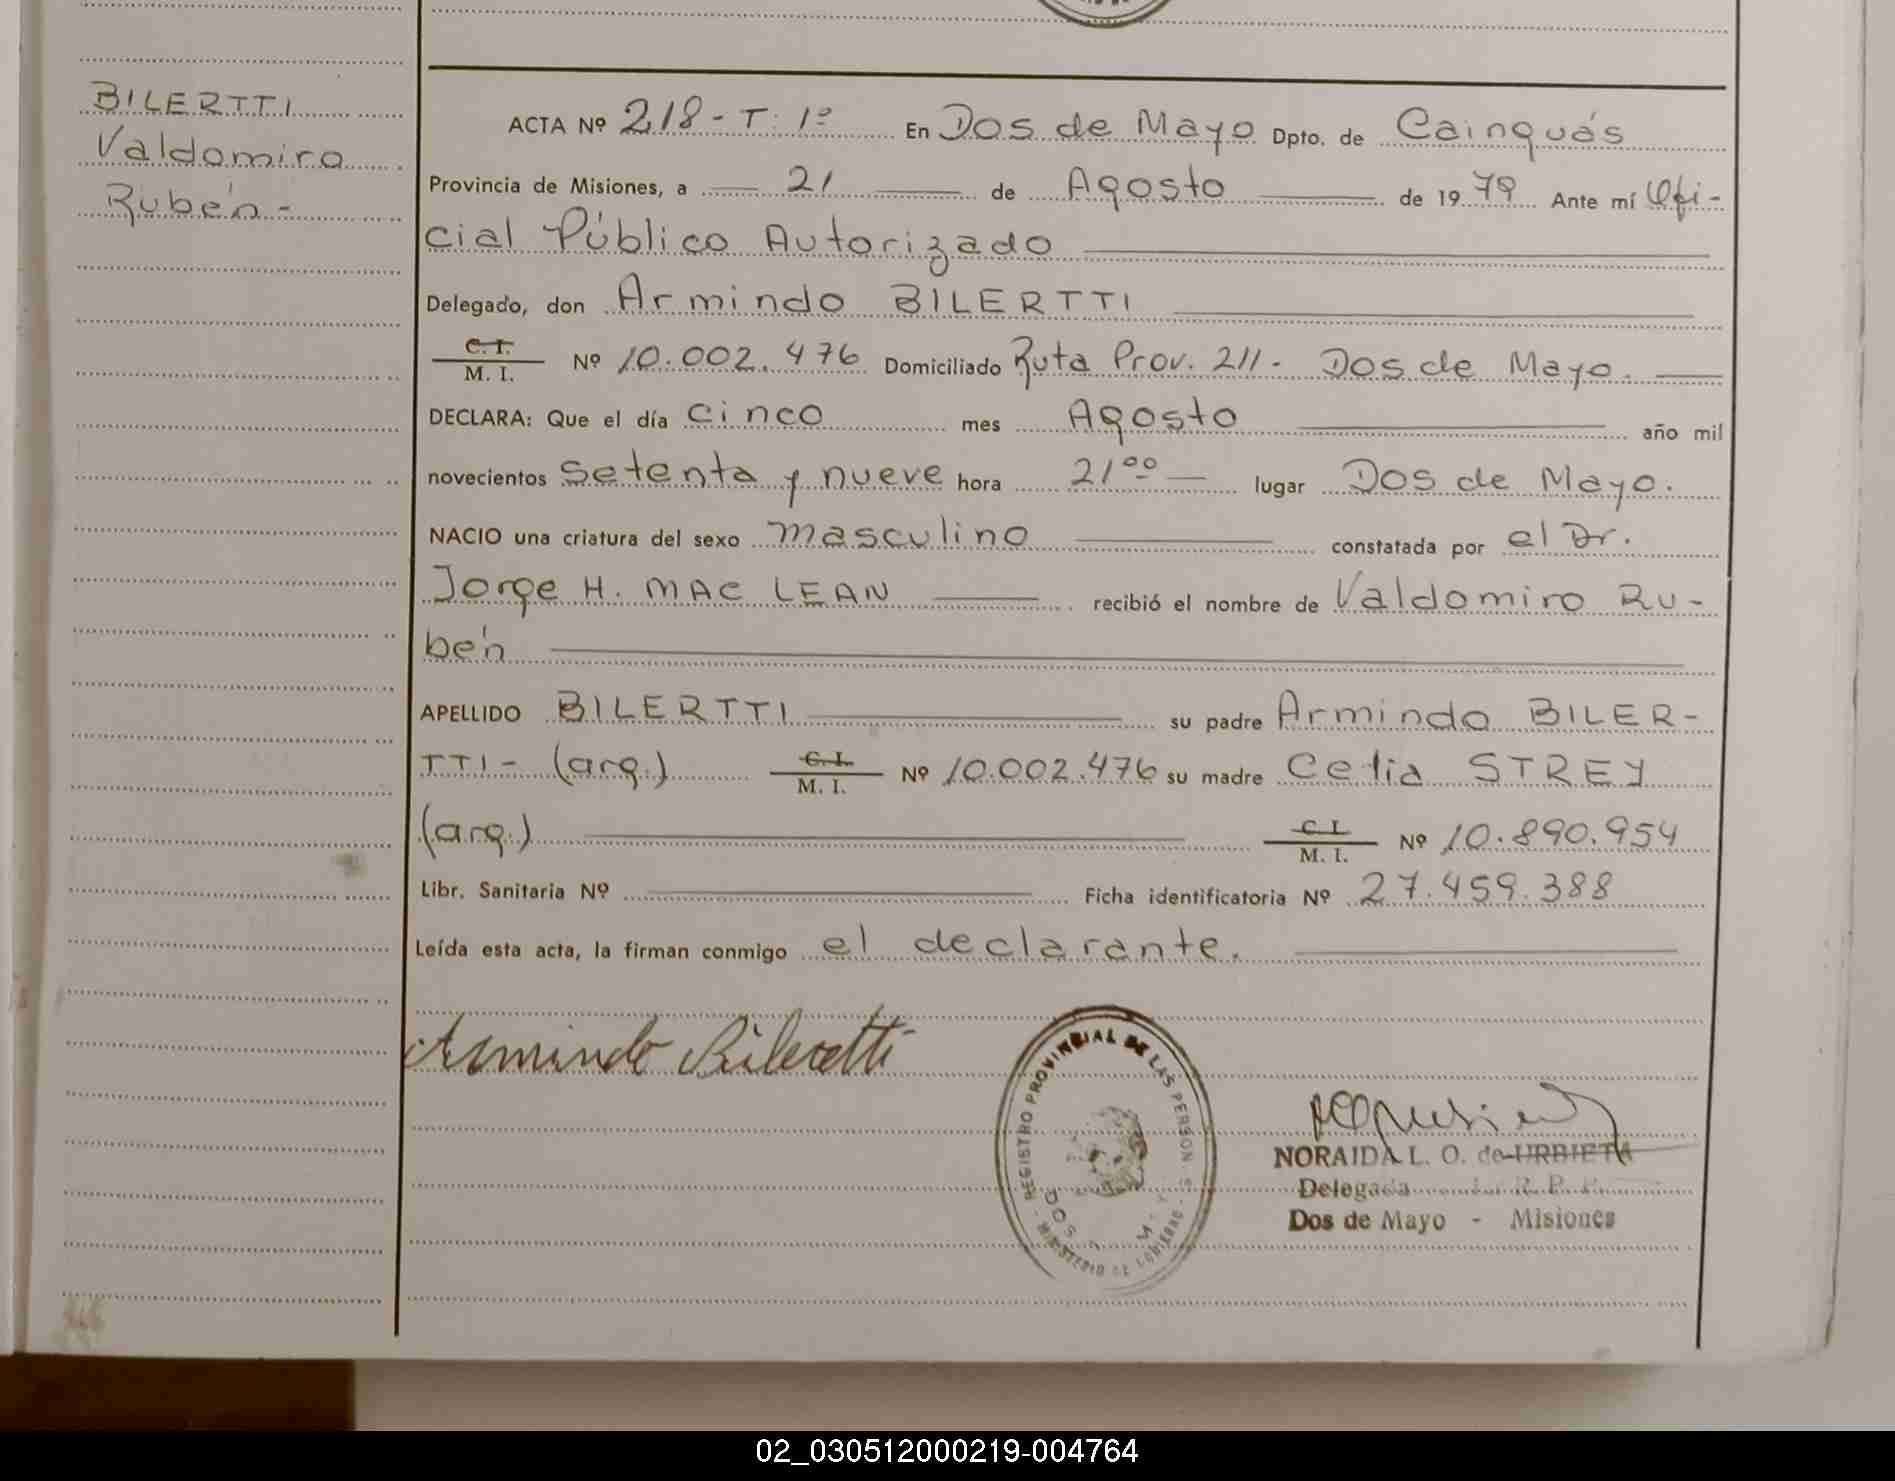 BILERTTI
Valdomiro
Rubén -
ACTA Nº 218 - T: 1º En Dos de Mayo Dpto. de Cainguás
Provincia de Misiones, a 21 de Agosto de 1979 Ante mí Ofi-
cial Público Autorizado
Delegado, don Armindo BILERTTI
C. I.
M. I. Nº 10.002.476 Domiciliado Ruta Prov. 211 - Dos de Mayo.
DECLARA: Que el día cinco mes Agosto año mil
novecientos setenta y nueve hora 21 00 lugar Dos de Mayo.
NACIO una criatura del sexo masculino constatada por el Dr.
Jorge H. MAC LEAN recibió el nombre de Valdomiro Ru-
bén
APELLIDO BILERTTI su padre Armindo BILER-
TTI - (arg.) C. I. M. I. Nº 10.002.476 su madre Celia STREY
(arg.) C I. M. I. Nº 10.890.954
Libr. Sanitaria Nº Ficha identificatoria Nº 27.459.388
Leída esta acta, la firman conmigo el declarante.
Armindo Bilertti
REGISTRO PROVINCIAL DE LAS PERSON
DOS M
MINISTERIO DE GOBIERNO
NORAIDA L. O. de URBIETA
Delegada R. P.
Dos de Mayo - Misiones
02_030512000219-004764